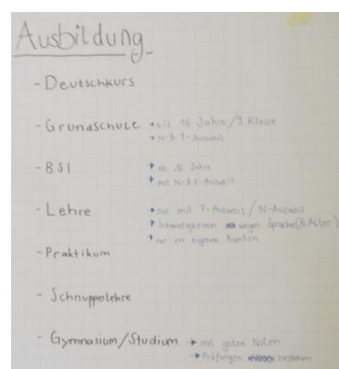 Ausbildung
- Deutschkurs
- Grundschule → bis 16 Jahre/9 Klasse
→ N- & F-Ausweis
- BSI → ab 16 Jahre
→ mit N- & F-Ausweis
- Lehre → nur mit F-Ausweis/N-Ausweis
→ Schwierigkeiten wegen Sprache (& Alter)
→ nur im eigenen Kanton
- Praktikum
- Schnupperlehre
- Gymnasium/Studium → mit guten Noten
→ Prüfungen bestehen